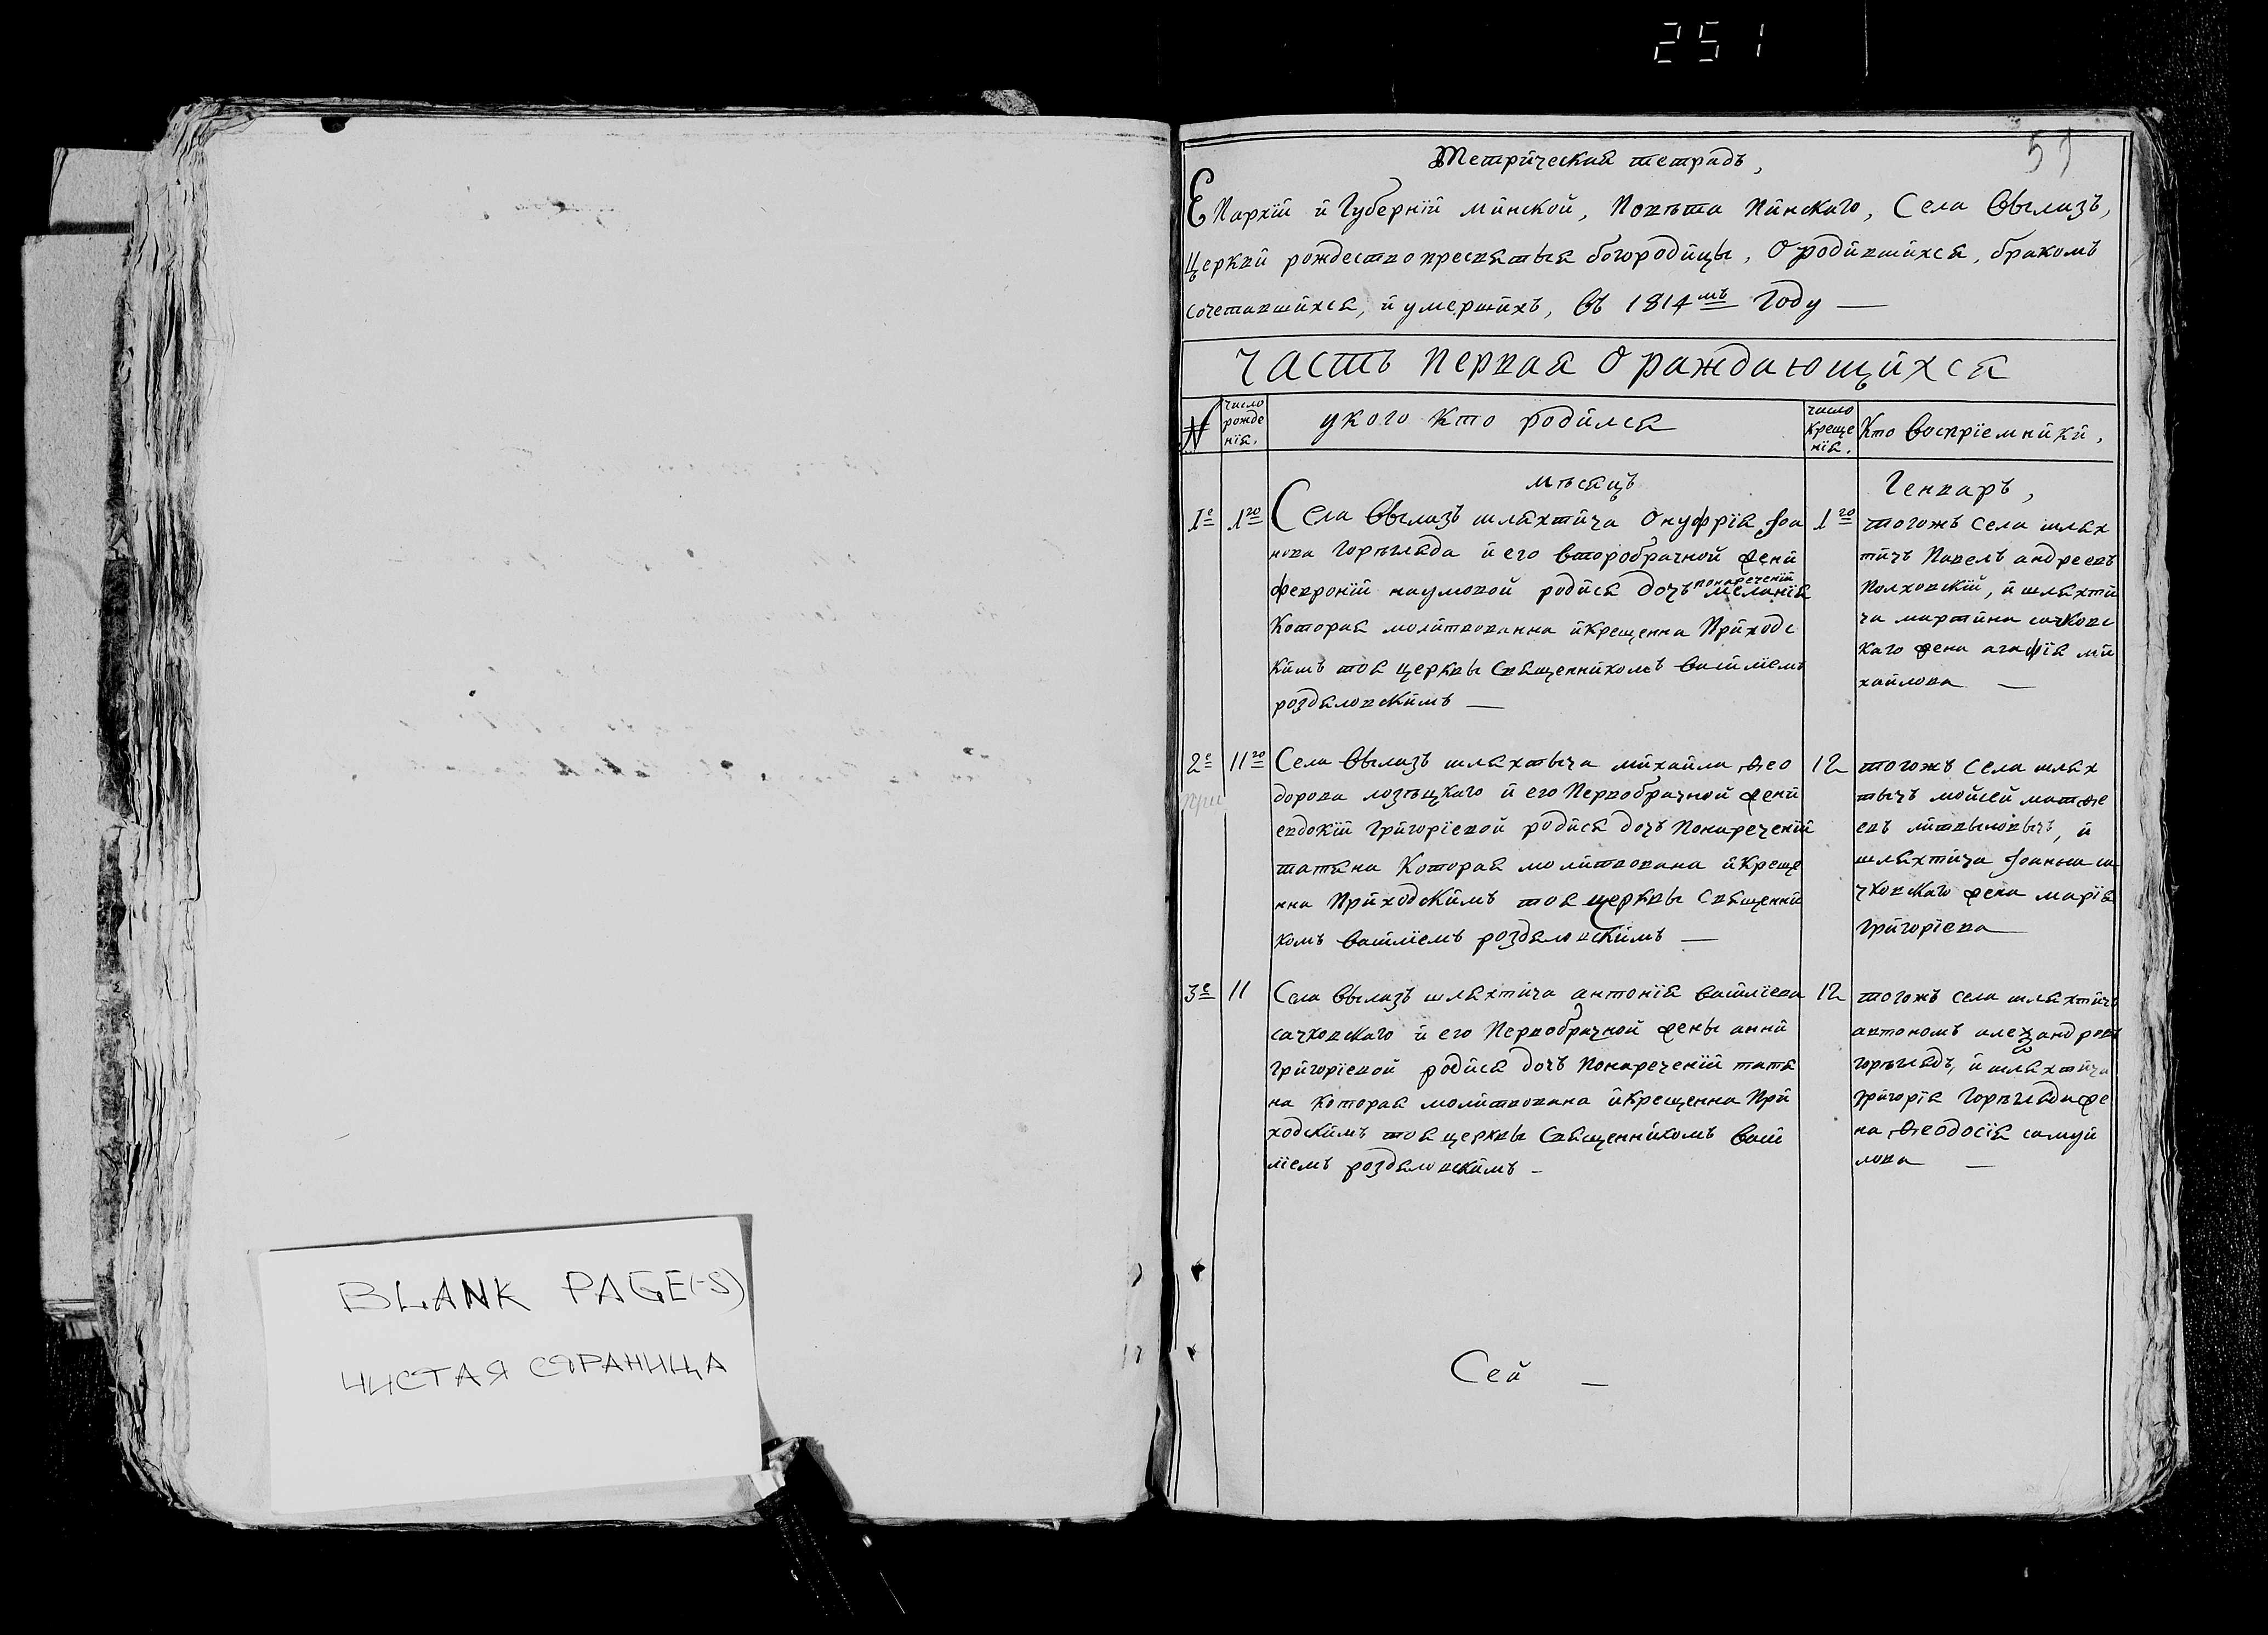 251
51
Метрическая тетрадь,
Епархіи и Губерніи минской, Повѣта Пинскаго, Села Вылазъ,
Церкви рождество пресвятыя богородицы, О родившихся, бракомъ
сочетавшихся, и умершихъ, въ 1814мъ Году —
Часть первая О раждающихся
№
число рожденія.
у кого кто родился
число крещенія.
Кто воспріемники,
мѣсяцъ
Генварь,
1е 1го Села Вылазъ шляхтича Онуфрія Іоа
нова Горѣгляда и его второбрачной жени
февроніи наумовой родися дочь понареченіи меланія
Которая молитвованна и крещенна Приходс
кимъ тоя церквы Священникомъ василіемъ
роздяловскимъ —
1го тогожъ села шлях
тичъ Павелъ андреевъ
Полховскій, и шляхти
ча мартина сачковс
каго жена агафія ми
хайлова —
2е 11го Села Вылазъ шляхтыча михайла Ѳео
дорова лозѣцкаго и его Первобрачной жени
евдокіи григоріевой родися дочь Понареченіи
татяна Которая молитвована и Креще
нна Приходскимъ тоя церквы Священни
комъ василіемъ роздяловскимъ —
При
12 тогожъ села шлях
тычъ мойсей матѳе
евъ литвыновычъ, и
шляхтича Іоанна са
чковскаго жена марія
григоріева —
3е 11 Села Вылазъ шляхтича антонія василіева
сачковскаго и его Первобрачной жены анни
григоріевой родися дочь Понареченіи татя
на Которая молитвована и Крещенна При
ходскимъ тоя церквы Священникомъ васи
ліемъ роздяловскимъ —
12 тогожъ села шляхтичъ
автономъ алеѯандровъ
горѣглядъ, и шляхтича
григорія Горѣгляда же
на Ѳеодосія самуй
лова —
Сей —
BLANK PAGE(-S)
ЧИСТАЯ СТРАНИЦА